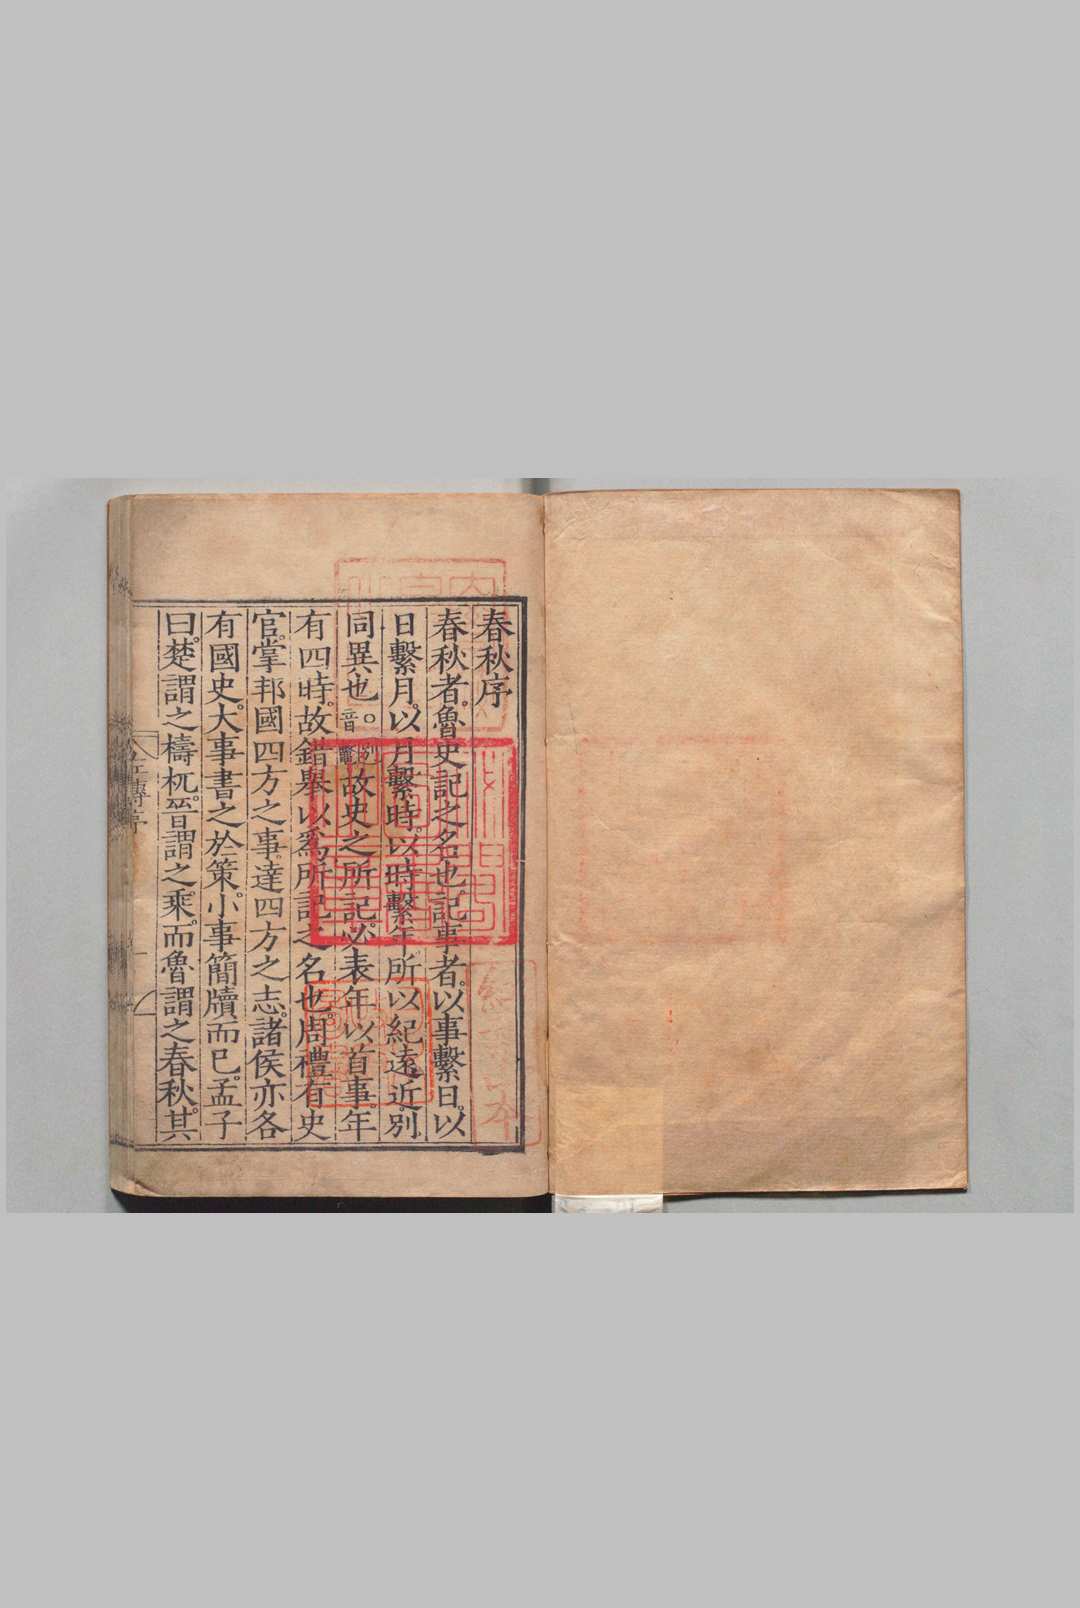 春秋序
春秋者。魯史記之名也。記事者。以事繫日。以
日繫月。以月繫時。以時繫年。所以紀遠近。別
同異也。○音別鼈故史之所記。必表年以首事。年
有四時。故錯舉以爲所記之名也。周禮有史
官。掌邦國四方之事。達四方之志。諸侯亦各
有國史。大事書之於策。小事簡牘而已。孟子
曰。楚謂之檮杌。晉謂之乘。而魯謂之春秋。其